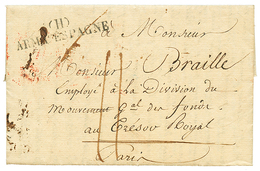 (11)
ARM. ESPAGNE
A Monsieur
Monsieur Braille
Employé à la Division du
Mouvement Gal des fonds
au Trésor Royal
Paris